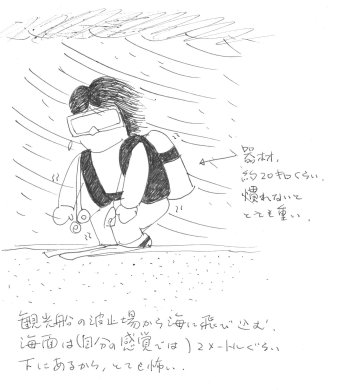 器材.
約20キロくらい.
慣れないと
とても重い.
観光船の波止場から海に飛び込む.
海面は(自分の感覚では)2メートルぐらい
下にあるから,とても怖い...